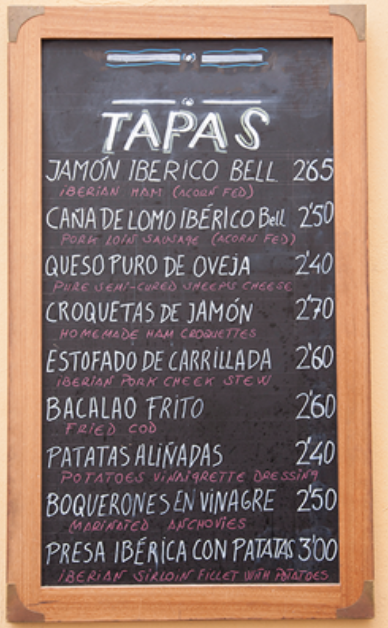 TAPAS
JAMÓN IBERICO BELL 2'65
IBERIAN HAM (ACORN FED)
CAÑA DE LOMO IBÉRICO Bell 2'50
PORK LOIN SAUSAGE (ACORN FED)
QUESO PURO DE OVEJA 2'40
PURE SEMI-CURED SHEEPS CHEESE
CROQUETAS DE JAMÓN 2'70
HOMEMADE HAM CROQUETTES
ESTOFADO DE CARRILLADA 2'60
IBERIAN PORK CHEEK STEW
BACALAO FRITO 2'60
FRIED COD
PATATAS ALIÑADAS 2'40
POTATOES VINAIGRETTE DRESSING
BOQUERONES EN VINAGRE 2'50
MARINATED ANCHOVIES
PRESA IBÉRICA CON PATATAS 3'00
IBERIAN SIRLOIN FILLET WITH POTATOES